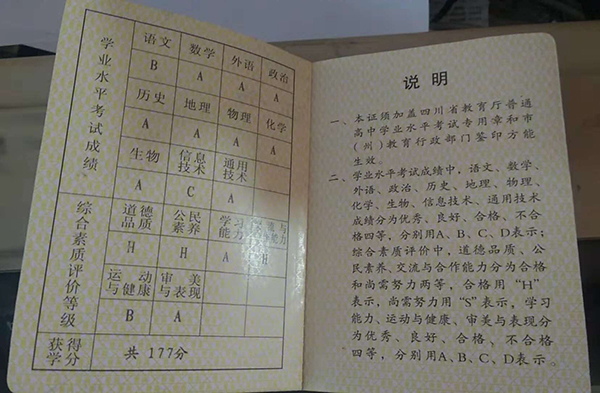 学业水平考试成绩
语文 数学 外语 政治
B A A A
历史 地理 物理 化学
A A A A
生物 信息技术 通用技术
A C A
综合素质评价等级
道德品质 公民素养 学习能力 交流与合作能力
H H A H
运动与健康 审美与表现
B A
获得学分 共 177分
说明
一、本证须加盖四川省教育厅普通
高中学业水平考试专用章和市
(州)教育行政部门鉴印方能
生效。
二、学业水平考试成绩中，语文、数学、
外语、政治、历史、地理、物理、
化学、生物、信息技术、通用技术
成绩分为优秀、良好、合格、不合
格四等，分别用A、B、C、D表示；
综合素质评价中，道德品质、公
民素养、交流与合作能力分为合格
和尚需努力两等，合格用“H”
表示，尚需努力用“S”表示，学习
能力、运动与健康、审美与表现分
为优秀、良好、合格、不合格
四等，分别用A、B、C、D表示。